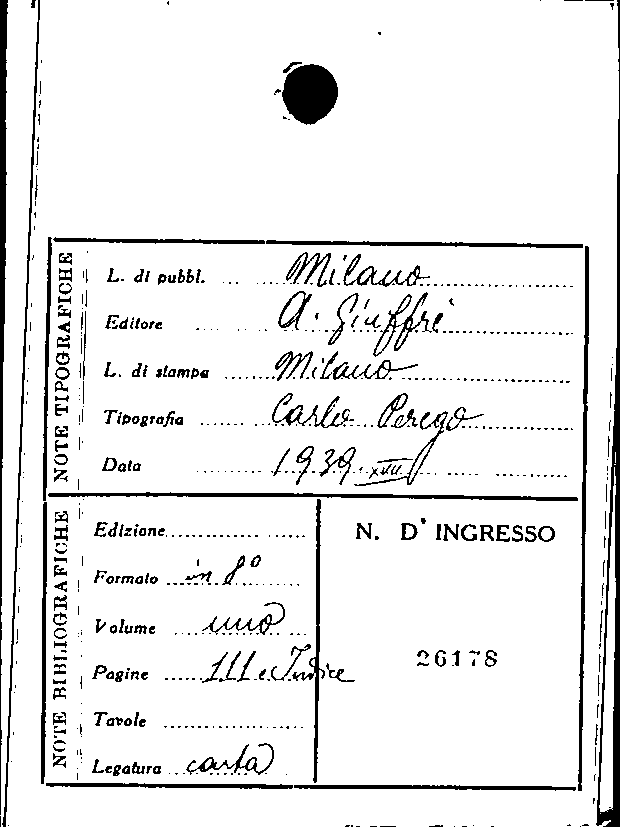 NOTE TIPOGRAFICHE
L. di pubbl. Milano
Editore A. Giuffrè
L. di stampa Milano
Tipografia Carlo Perego
Data 1939 XVII
NOTE BIBLIOGRAFICHE
Edizione
Formato in 8º
Volume uno
Pagine 111 e Indice
Tavole
Legatura carta
N. D' INGRESSO
26178